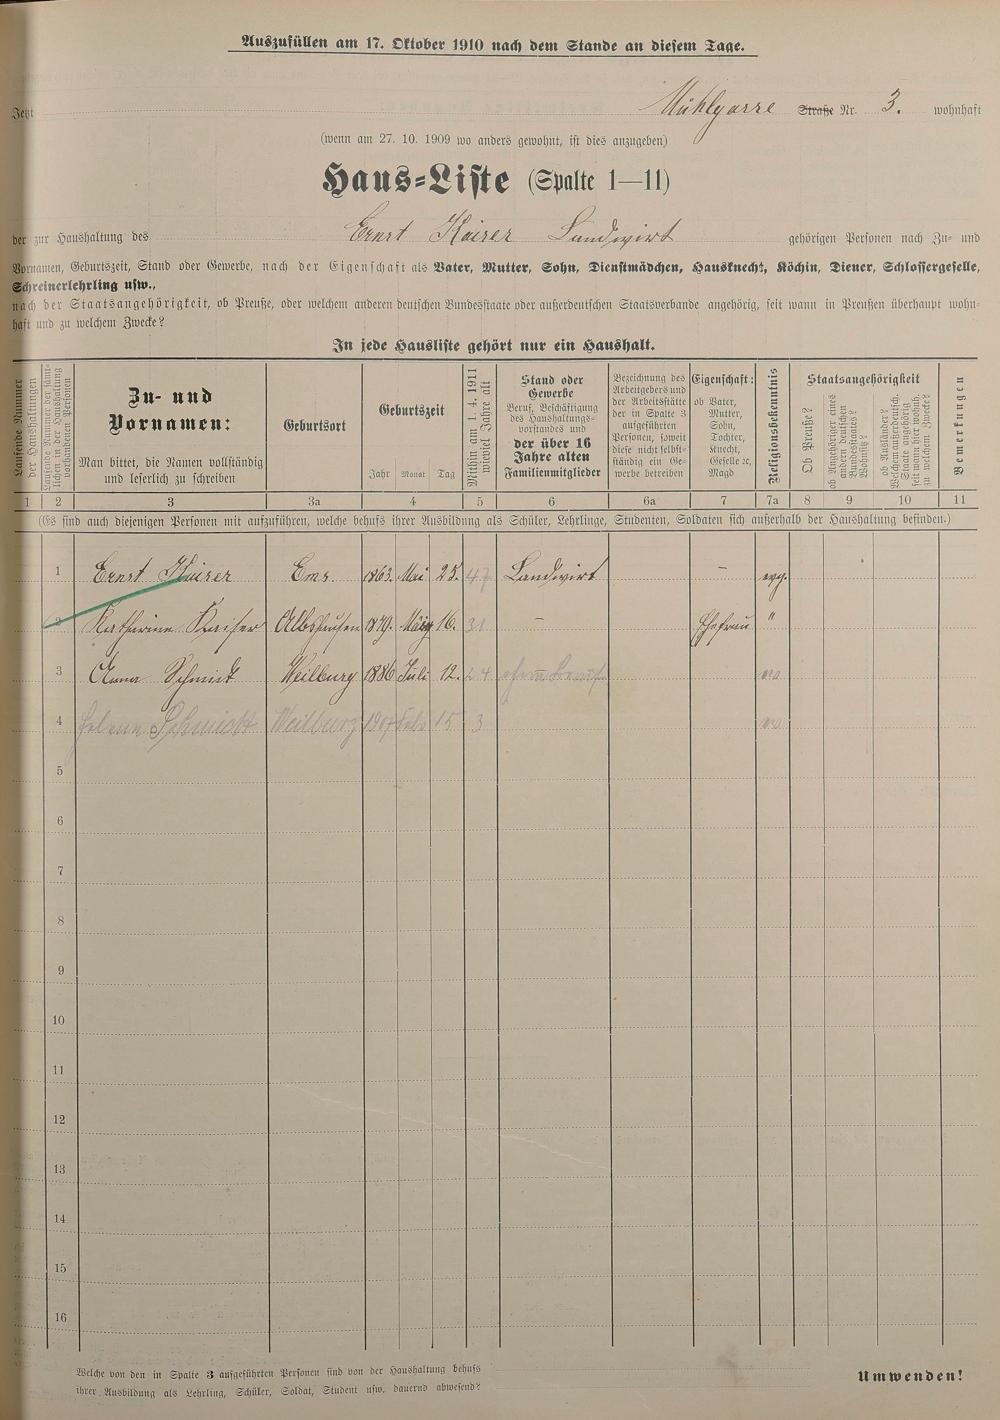 Auszufüllen am 17. Oktober 1910 nach dem Stande an diesem Tage.
Jetzt Mühlgasse Straße Nr. 3. wohnhaft
(wenn am 27. 10. 1909 wo anders gewohnt, ist dies anzugeben)
Haus-Liste (Spalte 1—11)
der zur Haushaltung des Ernst Kaiser Landwirt gehörigen Personen nach Zu- und
Vornamen, Geburtszeit, Stand oder Gewerbe, nach der Eigenschaft als Vater, Mutter, Sohn, Dienstmädchen, Hausknecht, Köchin, Diener, Schlossergeselle,
Schreinerlehrling usw.,
nach der Staatsangehörigkeit, ob Preuße, oder welchem anderen deutschen Bundesstaate oder außerdeutschen Staatsverbande angehörig, seit wann in Preußen überhaupt wohn-
haft und zu welchem Zwecke?
In jede Hausliste gehört nur ein Haushalt.
Laufende Nummer
der Haushaltungen
Laufende Nummer der sämt-
lichen in der Haushaltung
vorhandenen Personen
Zu- und
Vornamen:
Man bittet, die Namen vollständig
und leserlich zu schreiben
Geburtsort
Geburtszeit
Jahr Monat Tag
Mithin am 1. 4. 1911
wieviel Jahre alt
Stand oder
Gewerbe
Beruf, Beschäftigung
des Haushaltungs-
vorstandes und
der über 16
Jahre alten
Familienmitglieder
Bezeichnung des
Arbeitgebers und
der Arbeitsstätte
der in Spalte 3
aufgeführten
Personen, soweit
diese nicht selbst-
ständig ein Ge-
werbe betreiben
Eigenschaft:
ob Vater,
Mutter,
Sohn,
Tochter,
Knecht,
Geselle ꝛc,
Magd
Religionsbekenntnis
Staatsangehörigkeit
Ob Preuße?
ob Angehöriger eines
andern deutschen
Bundesstaates?
Wohnsitz?
ob Ausländer?
Welchem außerdeutsch.
Staate angehörig
seit wann hier wohnh.
zu welchem Zwecke?
Bemerkungen
1 2 3 3a 4 5 6 6a 7 7a 8 9 10 11
(Es sind auch diejenigen Personen mit aufzuführen, welche behufs ihrer Ausbildung als Schüler, Lehrlinge, Studenten, Soldaten sich außerhalb der Haushaltung befinden.)
1 Ernst Kaiser Ems. 1863. Mai 25. 47 Landwirt – evg.
2 Katharine Kaiser Albshausen 1879. März 16. 31 – Ehefrau "
3 Anna Schmidt Weilburg 1886 Juli 12. 24 ohne Beruf
4 Helene Schmidt Weilburg 1907 Febr 15 3
5
6
7
8
9
10
11
12
13
14
15
16
Welche von den in Spalte 3 aufgeführten Personen sind von der Haushaltung behufs
ihrer Ausbildung als Lehrling, Schüler, Soldat, Student usw. dauernd abwesend?
Umwenden!